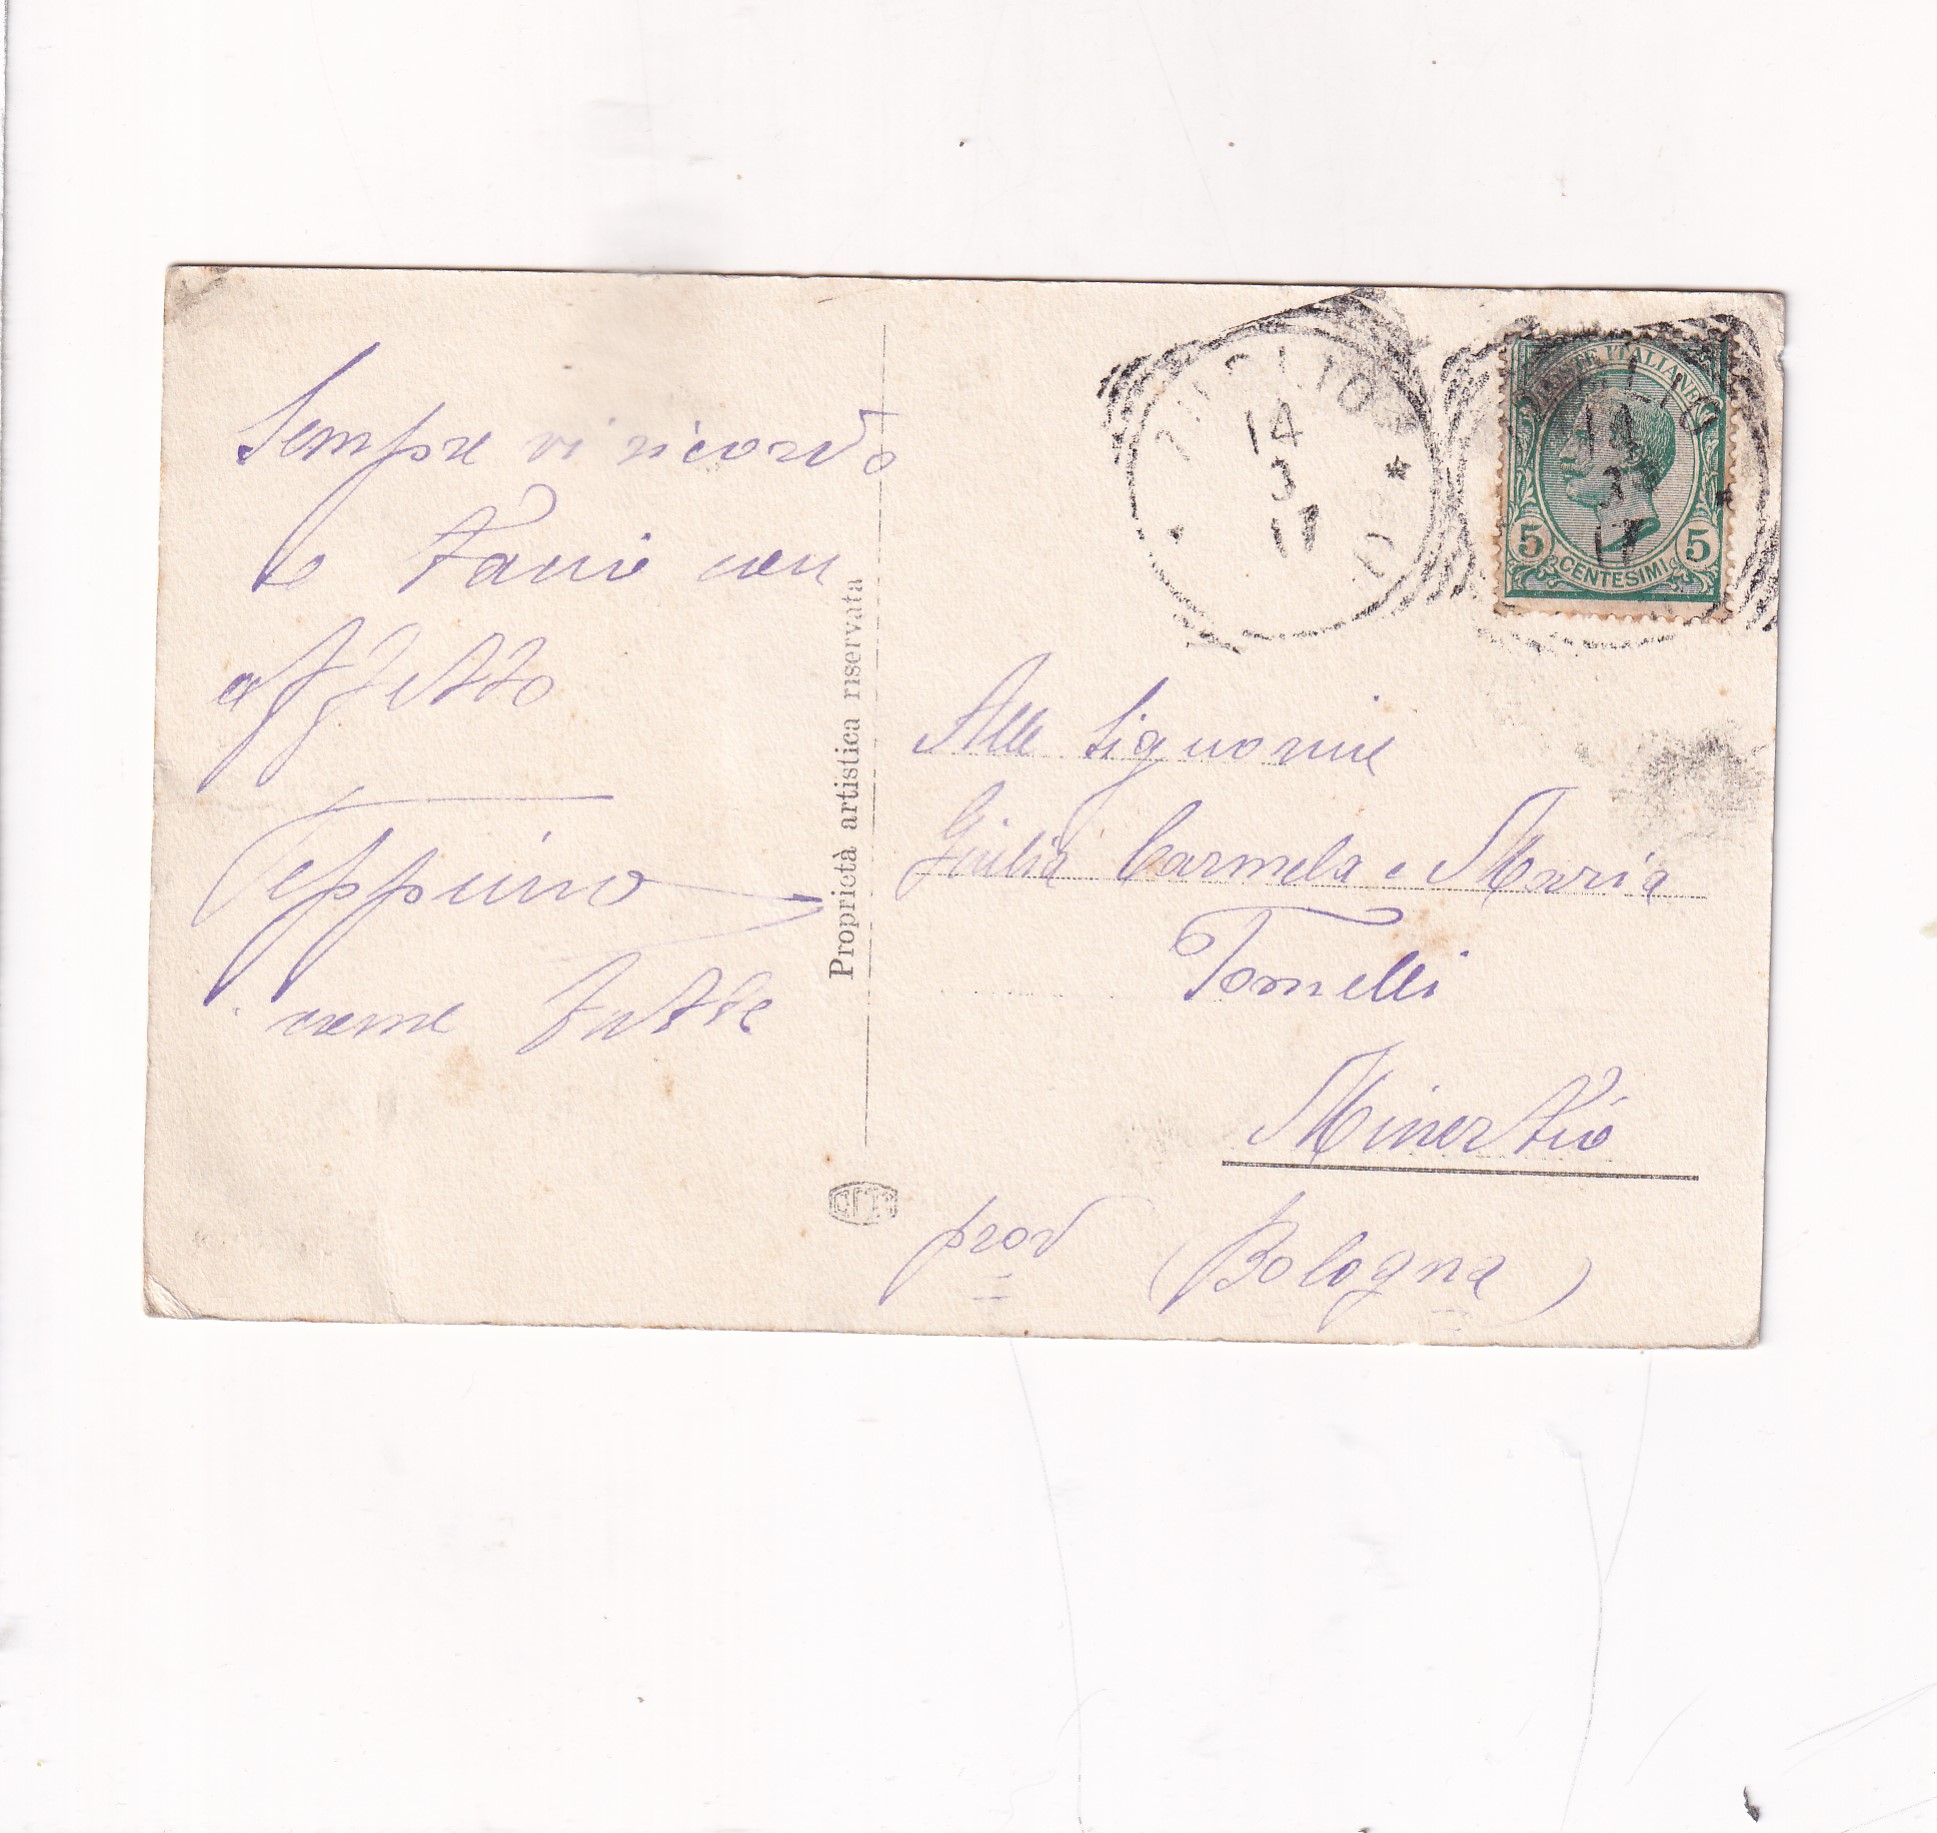 Sempre vi ricordo
e con
affetto
Peppino
come tutte
Proprietà artistica riservata
14
3
17
POSTE ITALIANE
14
3
17
5 CENTESIMI 5
Alle Signorine
Giulia Carmela e Maria
Tornelli
Minerbio
prov (Bologna)